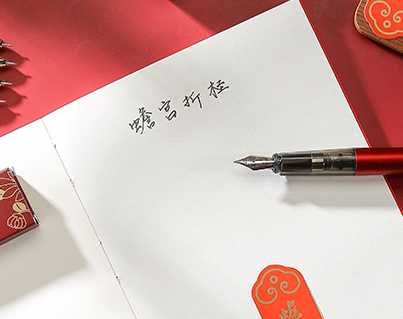 蟾宫折桂
蟾